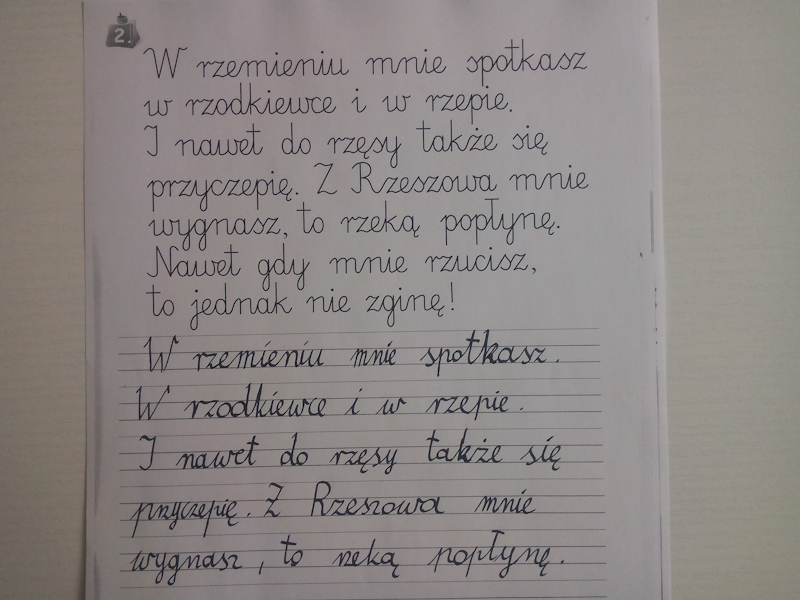 2.
W rzemieniu mnie spotkasz
w rzodkiewce i w rzepie.
I nawet do rzęsy także się
przyczepię. Z Rzeszowa mnie
wygnasz, to rzeką popłynę.
Nawet gdy mnie rzucisz,
to jednak nie zginę!
W rzemieniu mnie spotkasz.
W rzodkiewce i w rzepie.
I nawet do rzęsy także się
przyczepię. Z Rzeszowa mnie
wygnasz, to rzeką popłynę.